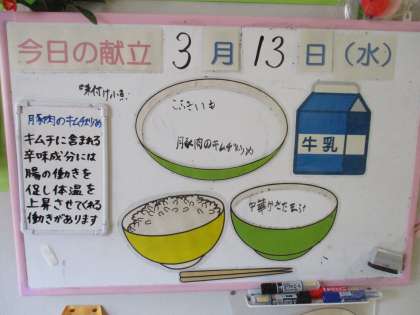 今日の献立 3月13日(水)
味付け小魚
こふきいも
豚肉のキムチ炒め
牛乳
豚肉のキムチ炒め
キムチに含まれる
辛味成分には
腸の働きを
促し体温を
上昇させてくれる
働きがあります
中華かきたま汁